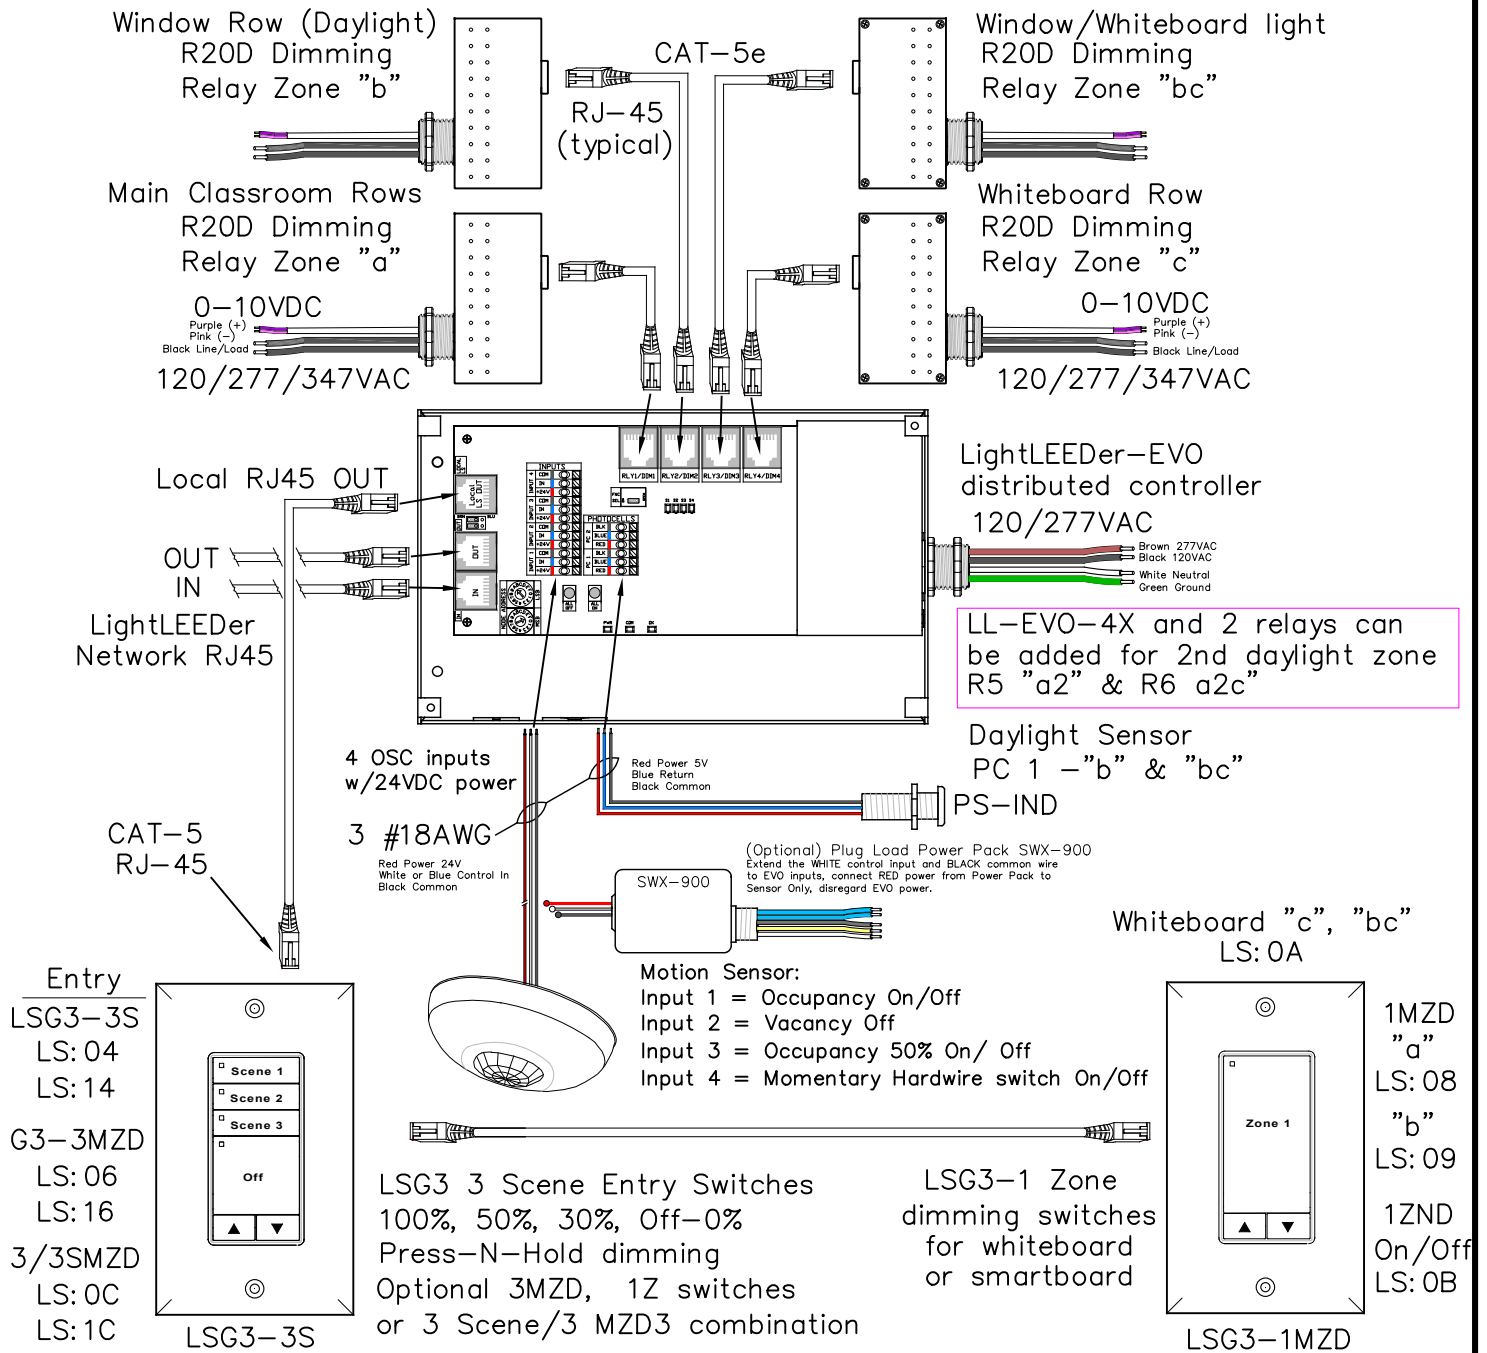 Window Row (Daylight)
R20D Dimming
Relay Zone "b"
CAT-5e
RJ-45
(typical)
Window/Whiteboard light
R20D Dimming
Relay Zone "bc"
Main Classroom Rows
R20D Dimming
Relay Zone "a"
0-10VDC
Purple (+)
Pink (-)
Black Line/Load
120/277/347VAC
Whiteboard Row
R20D Dimming
Relay Zone "c"
0-10VDC
Purple (+)
Pink (-)
Black Line/Load
120/277/347VAC
RLY1/DIM1
RLY2/DIM2
RLY3/DIM3
RLY4/DIM4
INPUTS
INPUT 4
COM
IN
+24V
INPUT 3
COM
IN
+24V
INPUT 2
COM
IN
+24V
INPUT 1
COM
IN
+24V
PHOTOCELLS
PC 2
BLK
BLUE
RED
PC 1
BLK
BLUE
RED
S1 S2 S3 S4
LOCAL
LS
Local
LS OUT
OUT
OUT
IN
IN
NODE ADDRESS
LSB
MSB
Local RJ45 OUT
OUT
IN
LightLEEDer
Network RJ45
LightLEEDer-EVO
distributed controller
120/277VAC
Brown 277VAC
Black 120VAC
White Neutral
Green Ground
LL-EVO-4X and 2 relays can
be added for 2nd daylight zone
R5 "a2" & R6 a2c"
Daylight Sensor
PC 1 -"b" & "bc"
PS-IND
4 OSC inputs
w/24VDC power
Red Power 5V
Blue Return
Black Common
3 #18AWG
Red Power 24V
White or Blue Control In
Black Common
CAT-5
RJ-45
(Optional) Plug Load Power Pack SWX-900
Extend the WHITE control input and BLACK common wire
to EVO inputs, connect RED power from Power Pack to
Sensor Only, disregard EVO power.
SWX-900
Motion Sensor:
Input 1 = Occupancy On/Off
Input 2 = Vacancy Off
Input 3 = Occupancy 50% On/ Off
Input 4 = Momentary Hardwire switch On/Off
Entry
LSG3-3S
LS:04
LS:14
G3-3MZD
LS:06
LS:16
3/3SMZD
LS:0C
LS:1C
Scene 1
Scene 2
Scene 3
Off
LSG3-3S
LSG3 3 Scene Entry Switches
100%, 50%, 30%, Off-0%
Press-N-Hold dimming
Optional 3MZD, 1Z switches
or 3 Scene/3 MZD3 combination
LSG3-1 Zone
dimming switches
for whiteboard
or smartboard
Whiteboard "c", "bc"
LS:0A
Zone 1
1MZD
"a"
LS:08
"b"
LS:09
1ZND
On/Off
LS:0B
LSG3-1MZD